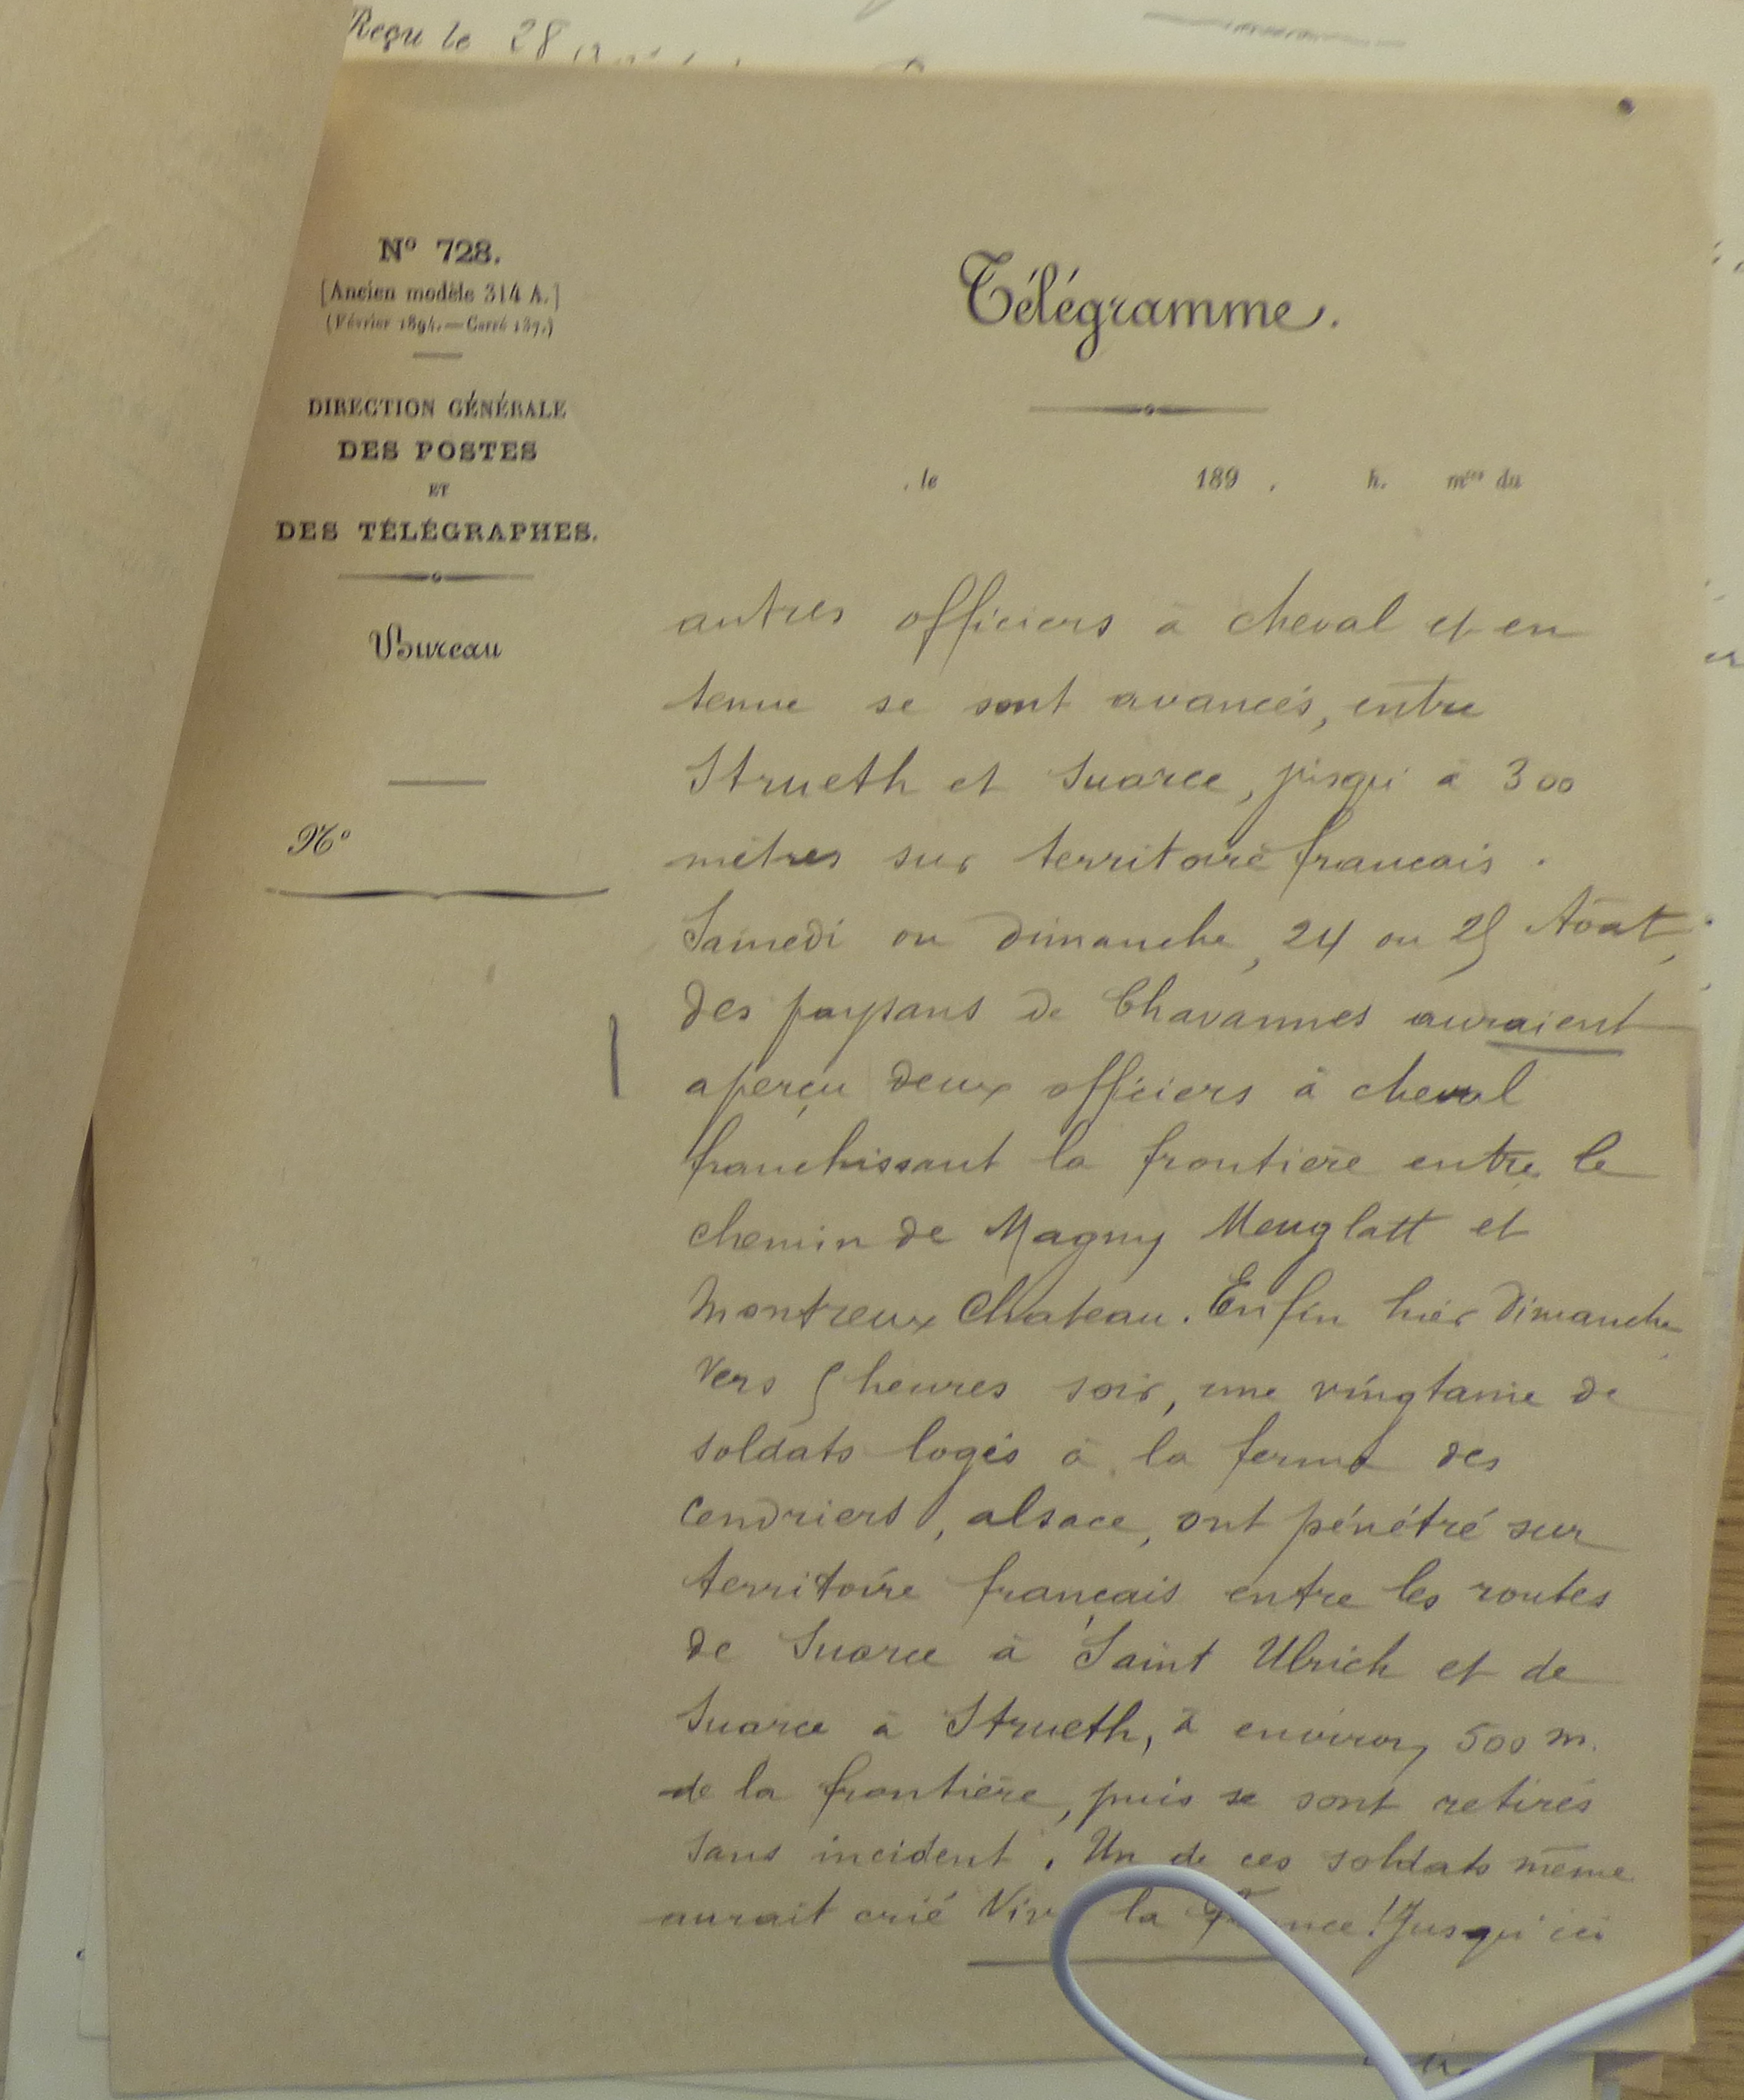 Reçu le 28
N° 728.
[Ancien modèle 314 A.]
(Février 1894.—Carré 147.)
DIRECTION GÉNÉRALE
DES POSTES
ET
DES TÉLÉGRAPHES.
Bureau
N°
Télégramme.
, le 189 , h. mtes du
autres officiers à cheval et en
tenue se sont avancés, entre
Strueth et Suarce, jusqu'à 300
mètres sur territoire francais.
Samedi ou dimanche, 24 ou 25 Août,
des paysans de Chavannes auraient
aperçu deux officiers à cheval
franchissant la frontière entre le
chemin de Magny Meuglatt et
Montreux Chateau. Enfin hier dimanche
vers 5 heures soir, une vingtaine de
soldats logés à la ferme des
cendriers, alsace, ont pénétré sur
territoire français entre les routes
de Suarce à Saint Ulrich et de
Suarce à Strueth, à environ 500 m.
de la frontière, puis se sont retirés
sans incident. Un de ces soldats même
aurait crié Vive la France! Jusqu'ici